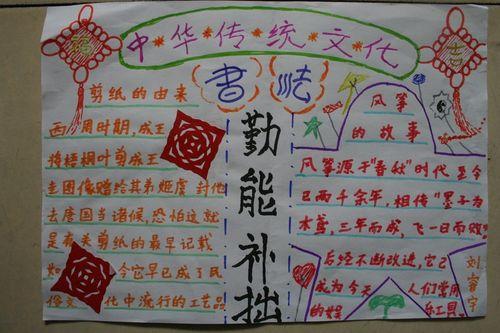 中华传统文化
福
吉
书法
剪纸的由来
西周时期,成王
将梧桐叶剪成王
圭图像赠给其弟姬虞封他
去唐国当诸侯,恐怕这就
是有关剪纸的最早记载
如今它早已成了民
俗文化中流行的工艺品
勤能补拙
风筝
的故事
风筝源于"春秋"时代至今
已两千余年,相传"墨子为
木鸢,三年而成,飞一日而败"
后经不断改进,它已
成为今天人们常用
的娱乐工具。
刘睿宇